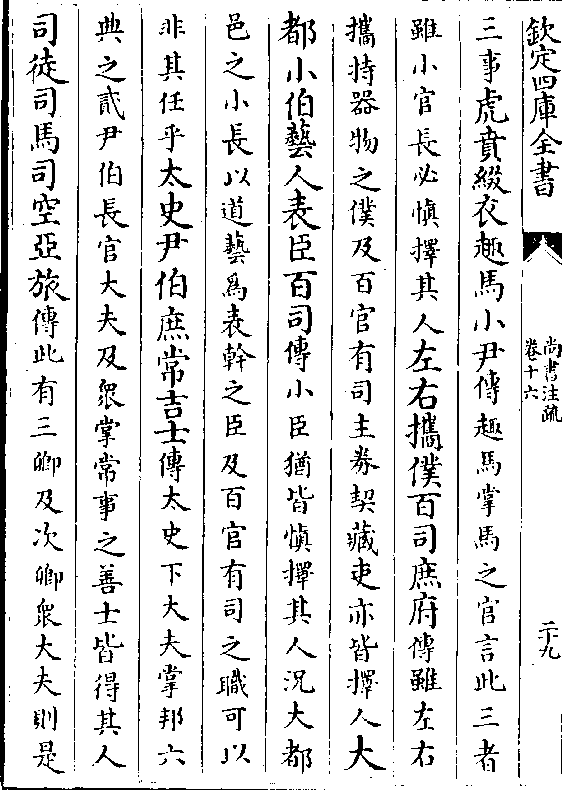 欽定四庫全書
尚書注疏
卷十六
二十九
三事虎賁綴衣趣馬小尹傳趣馬掌馬之官言此三者
雖小官長必慎擇其人左右攜僕百司庶府傳雖左右
攜持器物之僕及百官有司主券契藏吏亦皆擇人大
都小伯藝人表臣百司傳小臣猶皆慎擇其人況大都
邑之小長以道藝為表幹之臣及百官有司之職可以
非其任乎太史尹伯庶常吉士傳太史下大夫掌邦六
典之貳尹伯長官大夫及衆掌常事之善士皆得其人
司徒司馬司空亞旅傳此有三卿及次卿衆大夫則是